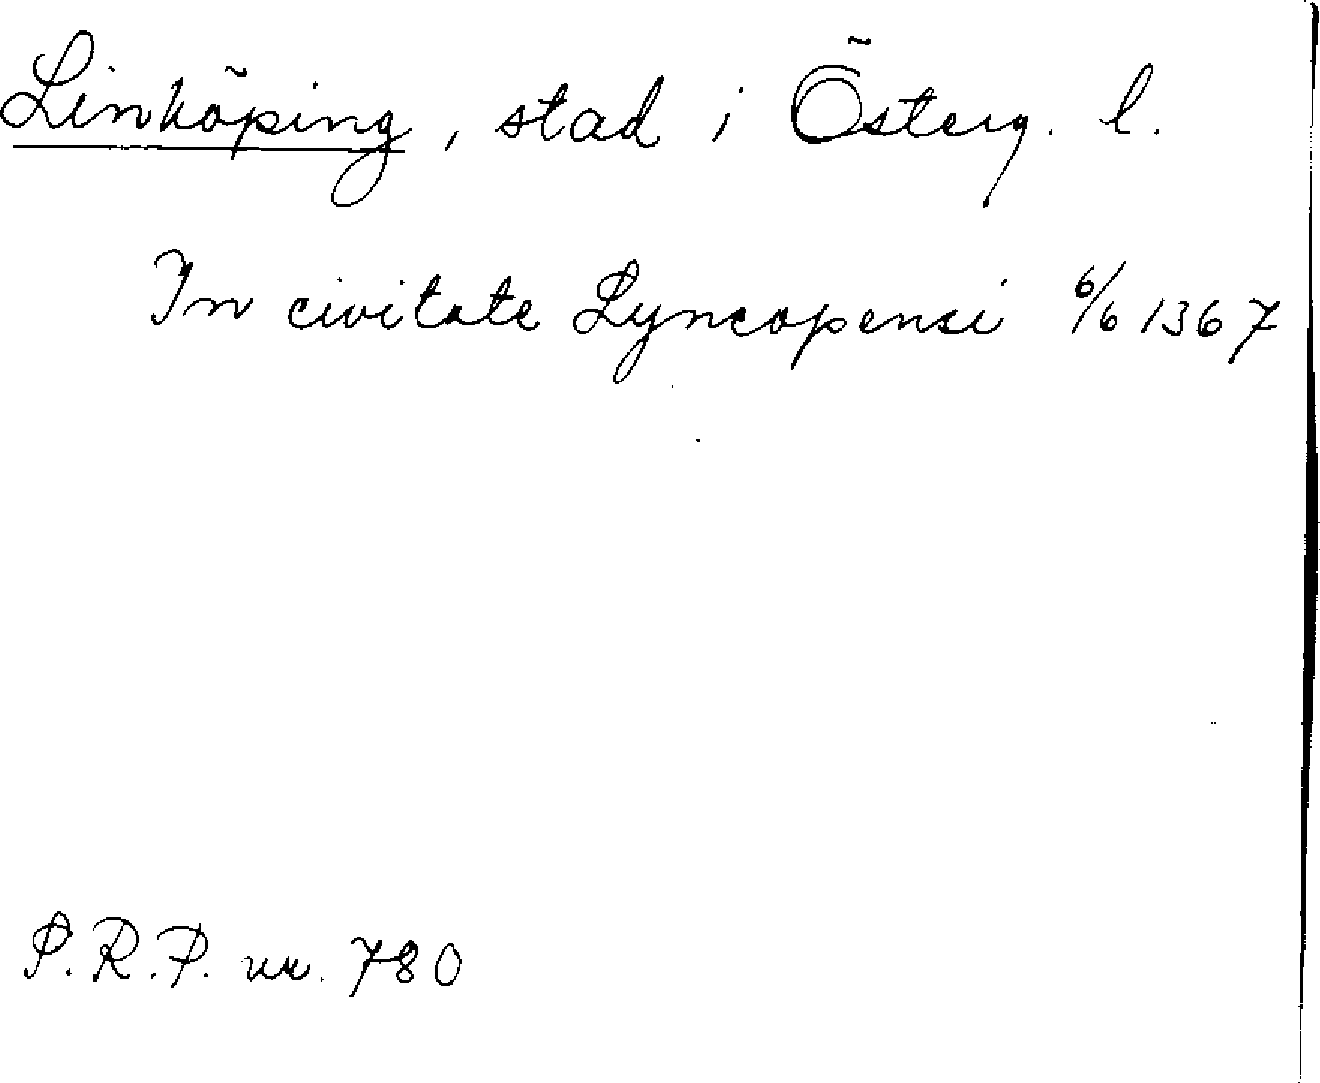 Linköping, stad i Österg. l.
In civitate Lyncopensi 6/6 1367
S.R.P. nr. 780